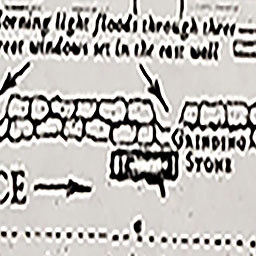 orning light floods through three
reet windows set in the east wall
GRINDING
STONE
CE